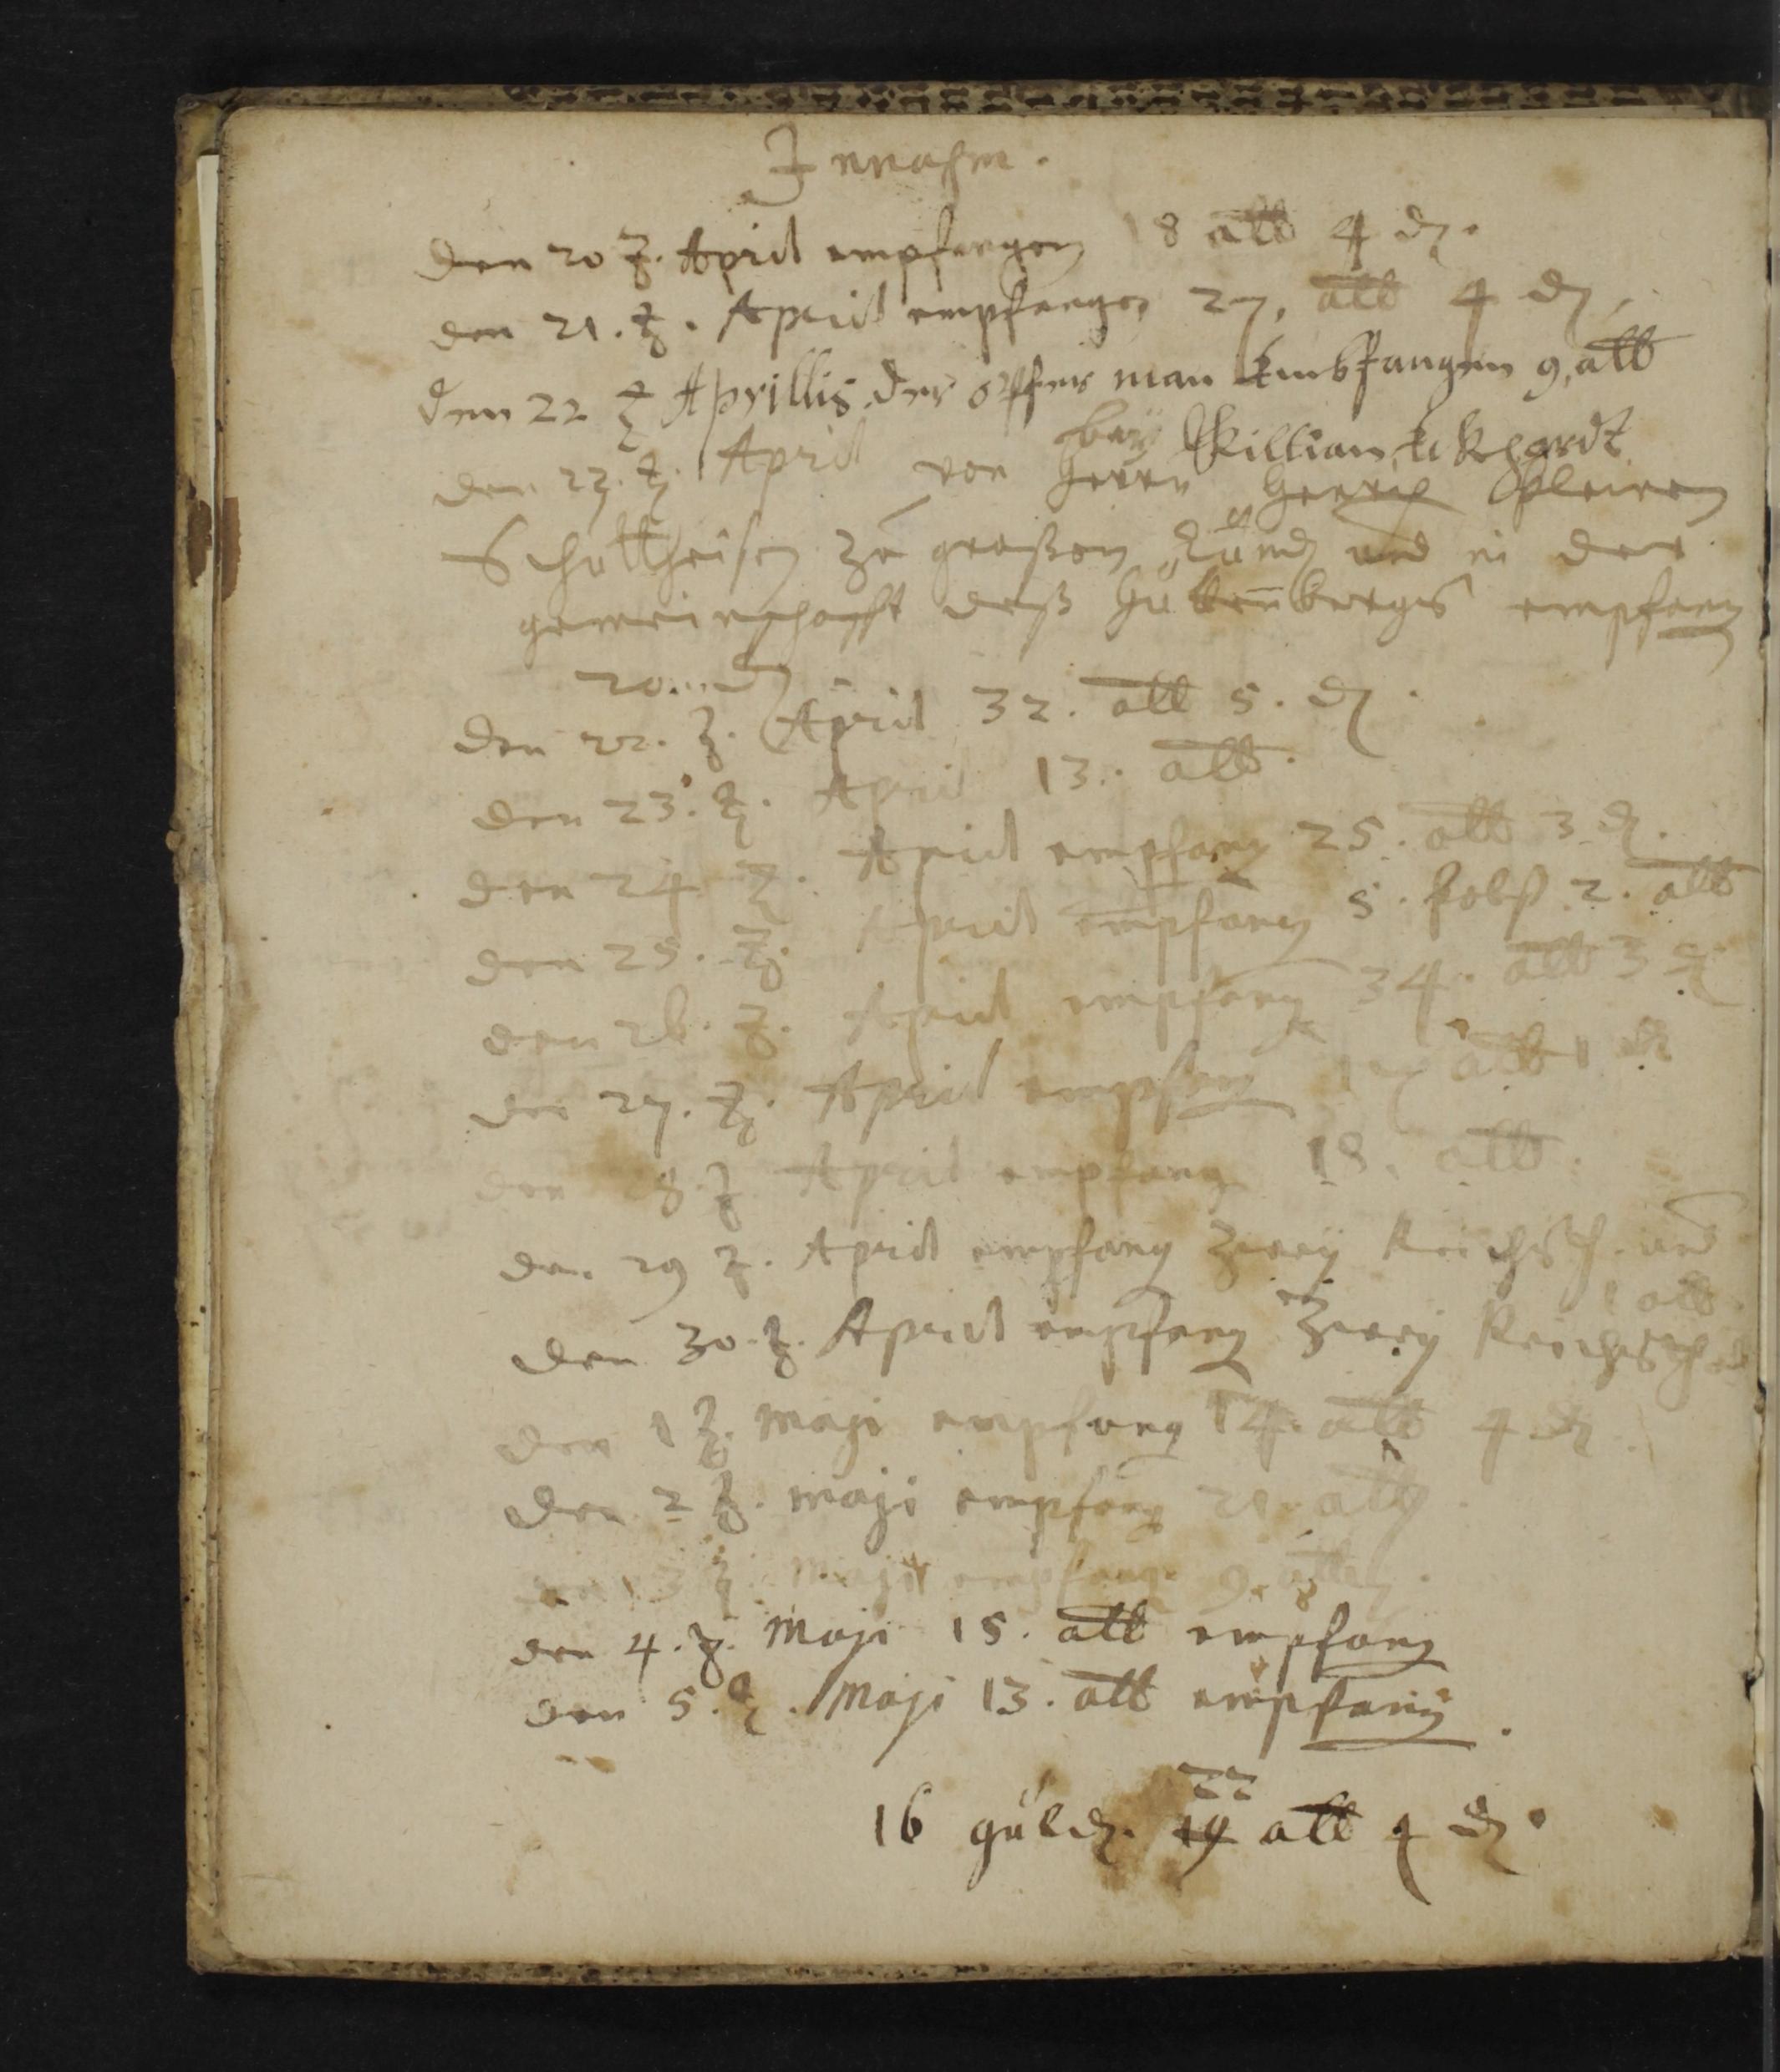 Innahm.
den 20 ʒ. April empfangen 18 alb 4 ₰.
den 21. ʒ. April empfangen 27. alb 4 ₰.
den 22 ʒ Aprillis der opfer man Embfangen 9, alb
bey Killian Eckhardt
den 23. ʒ. April von herrn Henrich
Schultheisen zu großen und in der
gemeinschafft deß empfang
20. ₰
den 22. ʒ. April 32. alb 5. ₰.
den 23. ʒ. April 13. alb.
den 24 ʒ. April empfang 25. alb 3 ₰.
den 25. ʒ. April empfang 5. kobß 2. alb
den 26. ʒ. April empfang 34. alb 3 ₰
den 27. ʒ. April empfang 17 alb 1 ₰
den 28. ʒ April empfang 18. alb.
den 29 ʒ. April empfang zwey Reichsth. und
1 alb.
den 30. ʒ. April empfang zwey Reichsth
den 1 ʒ. Maji empfang 14. alb 4 ₰.
den 2 ʒ. Maji empfang 21. alb.
den 3 ʒ. Maji empfang 9. alb.
den 4. ʒ. Maji 15. alb empfang
den 5. ʒ. Maji 13. alb empfang.
22
16 güld. 19 alb 4 ₰.